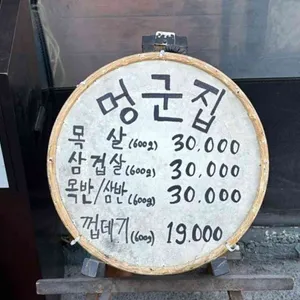 멍군집
목 살(600g) 30.000
삼겹살(600g) 30.000
목반/삼반(600g) 30.000
껍데기(600g) 19.000